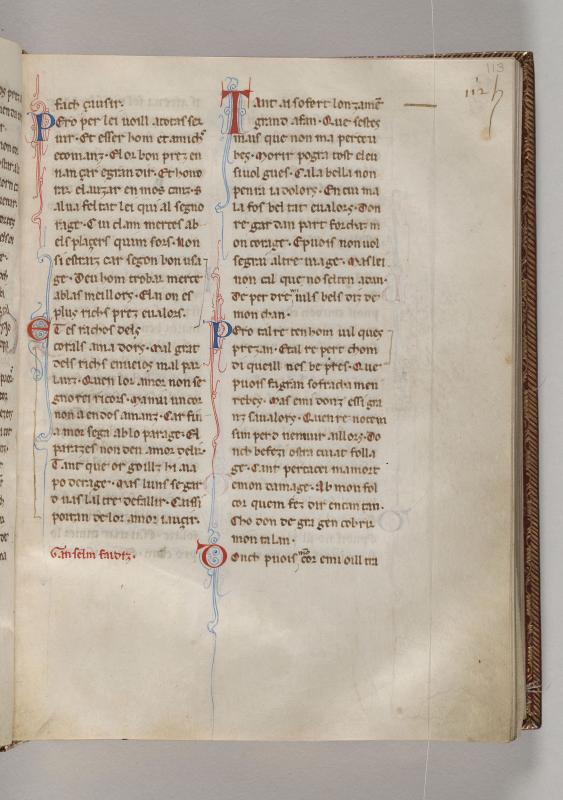 113
112
fach çausir.
Pero per lei voill a totas ser
uir. Et esser hom et amichs
e comanz. E lor bon prez en
nan çar e gran dir. Et hono
rar e lauzar en mos canz. S
al ua feltat lei qui al segno
ratge. C iu clam merces ab
els plaçers quam fors. Non
si estraz car segon bon usa
ge. Deu hom trobar merce
ab las meillors. E lai on es
plus richs prez e ualors.
Et es rachos dels
cortals ama dors. Mal grat
dels richs enueios mal par
lanz. Quen lor amor non se
gnorei ricors. Mamai un cor
non a en dos amanz. Car fin
a mor segn ab lo parage. El
paratges non den amor delir
Tant que or goillz hi aia
po deratge. Mas luns segar
d uas lal tre defallir. Cuissi
portan de lor amor iauçir.
Ganselm faidiz.
Tant ai sofert lonzamen
gran d afan. Que sestes
mais que non ma perceu
bes. Morir pogra tost e leu
si uol gues. Cala bella non
penra ia dolors. En cui ma
la fos bel tat e ualors. Don
re gar dan part forchat m
on coratge. E puois non uol
segrai altre uiatge. Mas lei
non cal que no sel ten a dan.
De per dre mils bels diz de
mon chan.
Pero tal re ten hom uil ques
prezan. E tal re pert chom
di queill nes be pres. Que
puois fa gran sofracha men
rebes. Mas emi donz essi gra
nz sa ualors. Quen re notem
sun perd nemuir aillors. Do
nch be fezi ostra cuiat folla
ge. Cant per tacei ma mort
e mon damage. Ab mon fol
cor quem fez dir en can tan.
Cho don de gra gen cobru
mon talan.
Donch puois mon cor e mi oill tra